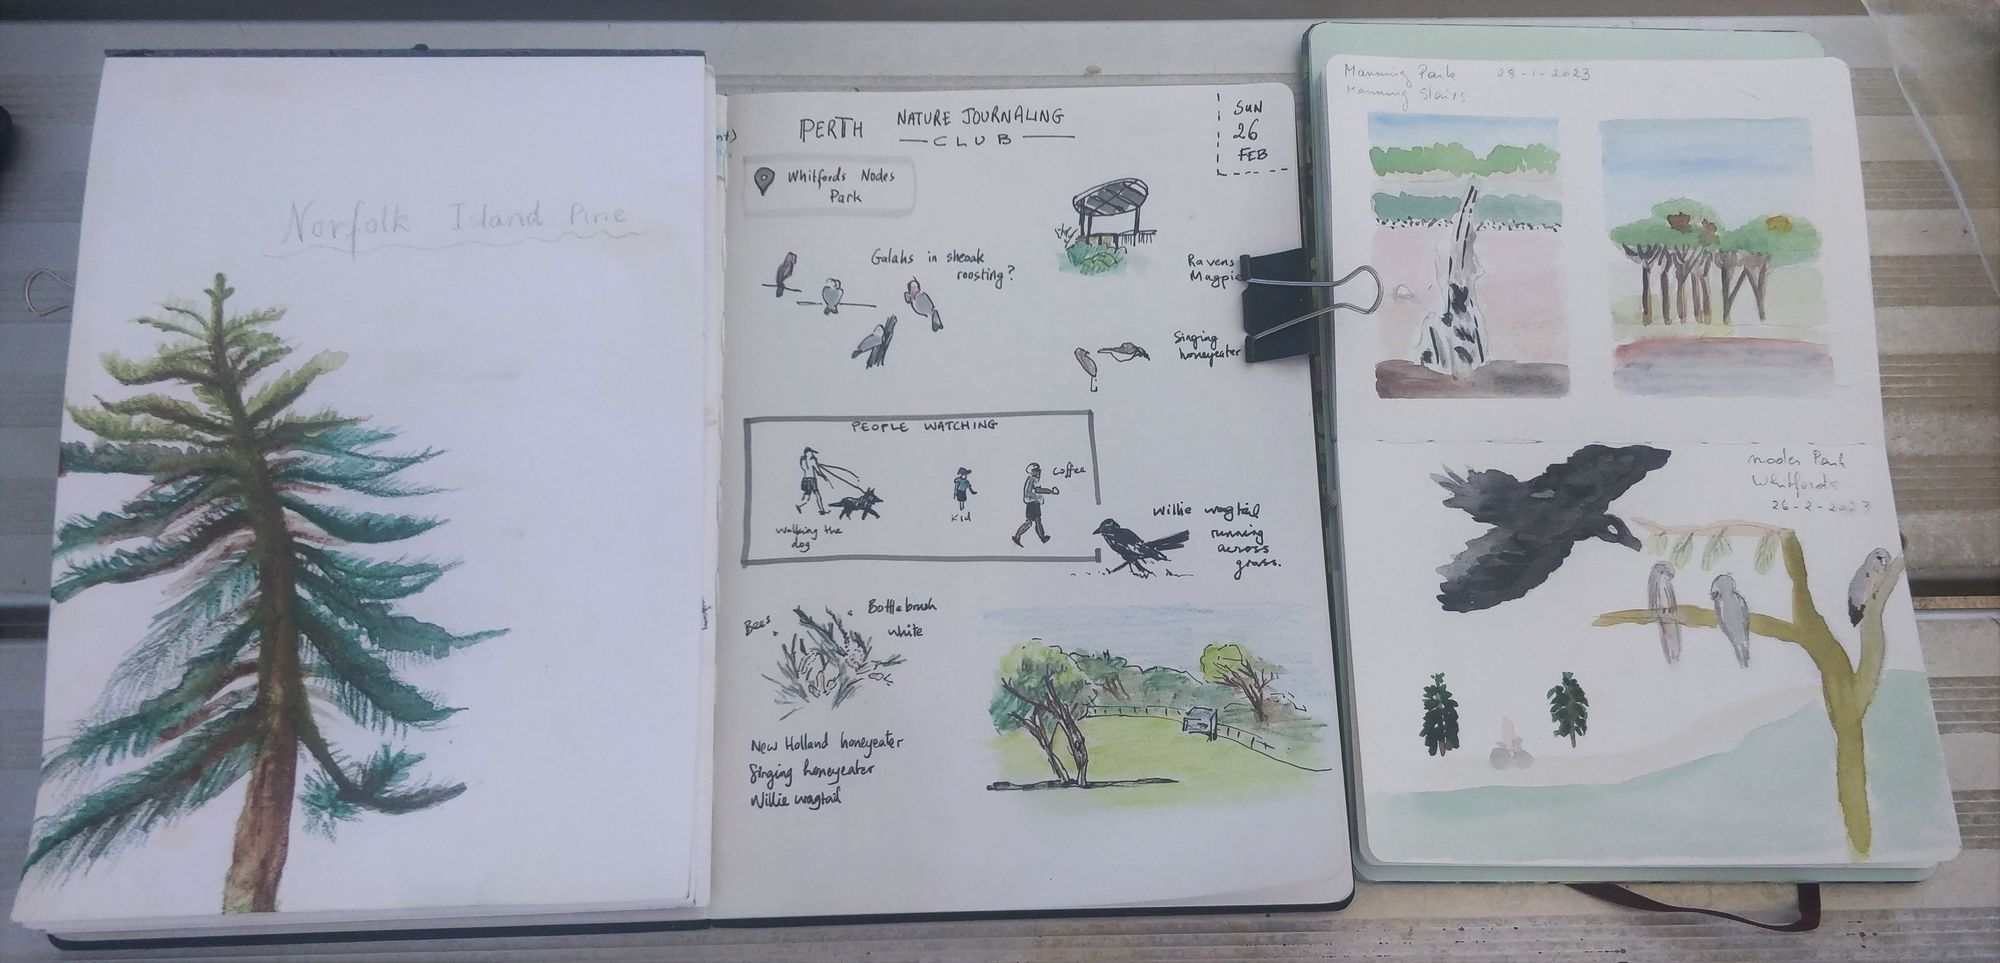 Norfolk Island Pine
PERTH NATURE JOURNALING
CLUB
SUN
26
FEB
Whitfords Nodes
Park
Galahs in sheoak
roosting?
Ravens
Magpie
Singing
honeyeater
PEOPLE WATCHING
Walking the
dog
Kid
Coffee
Willie wagtail
running
across
grass.
Bees
Bottlebrush
white
New Holland honeyeater
Singing honeyeater
Willie wagtail
Manning Park 28-1-2023
Manning Stairs
Nodes Park
Whitfords
26-2-2023